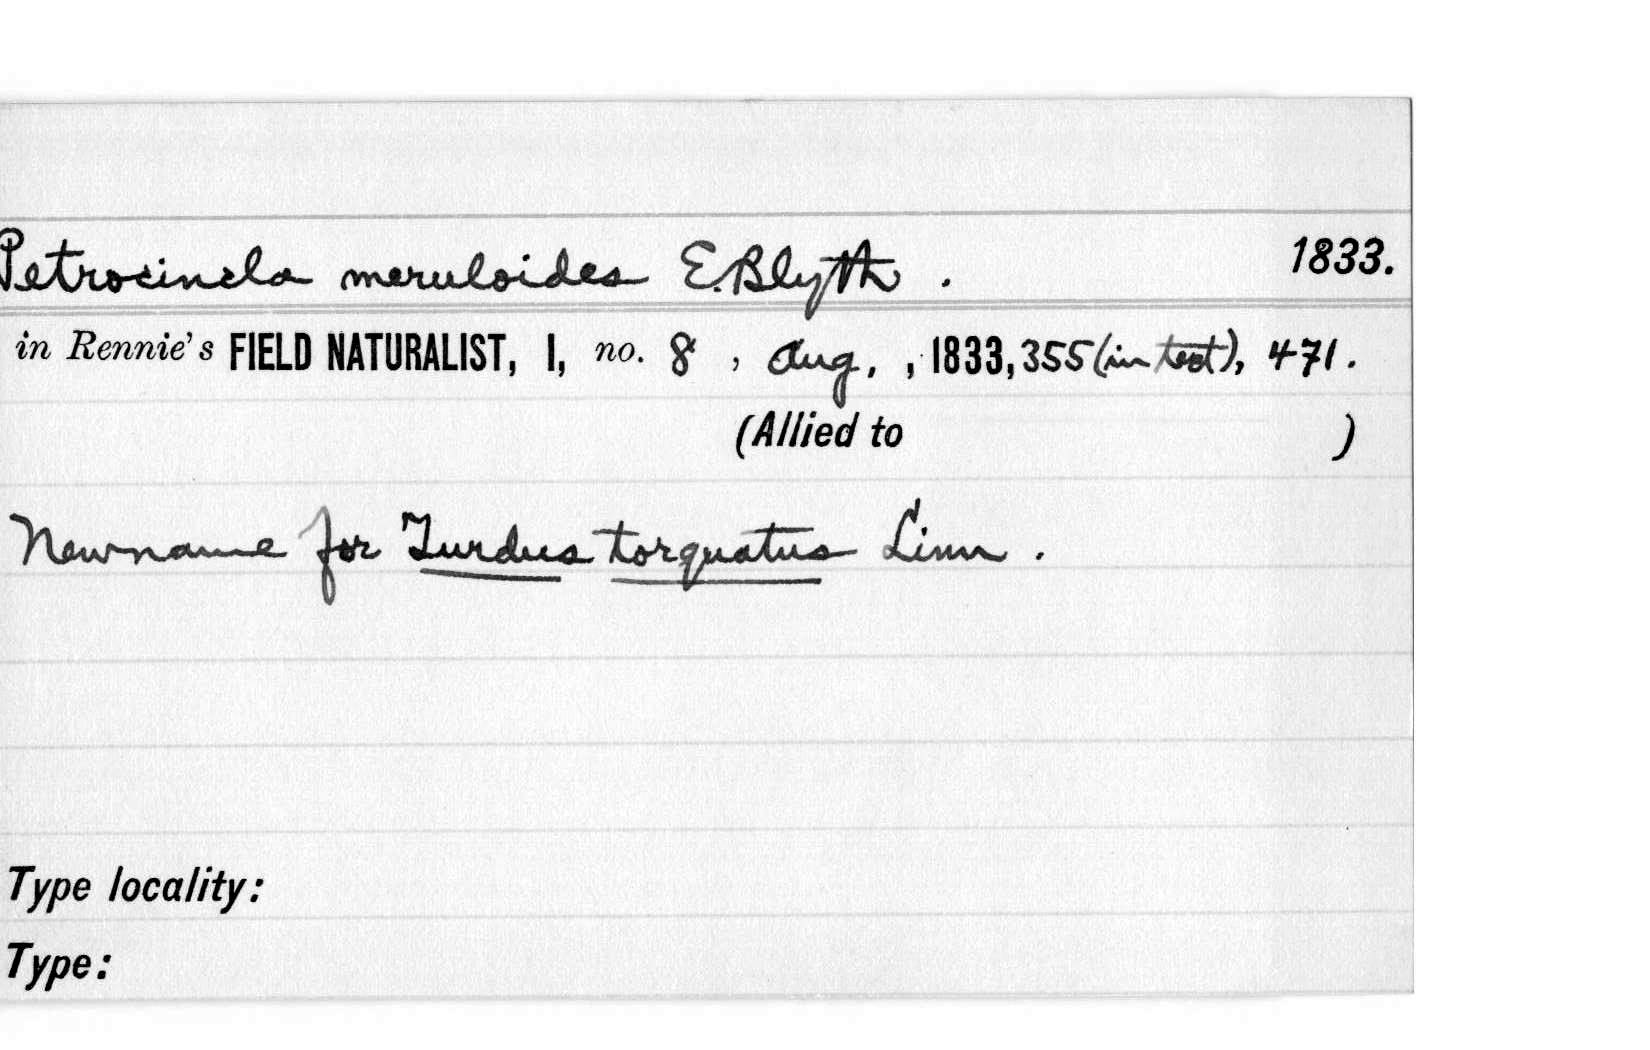 Petrocincla meruloides E. Blyth . 1833.
in Rennie's FIELD NATURALIST, I, no. 8 , Aug. , 1833, 355 (in text), 471.
(Allied to )
New name for Turdus torquatus Linn .
Type locality:
Type: